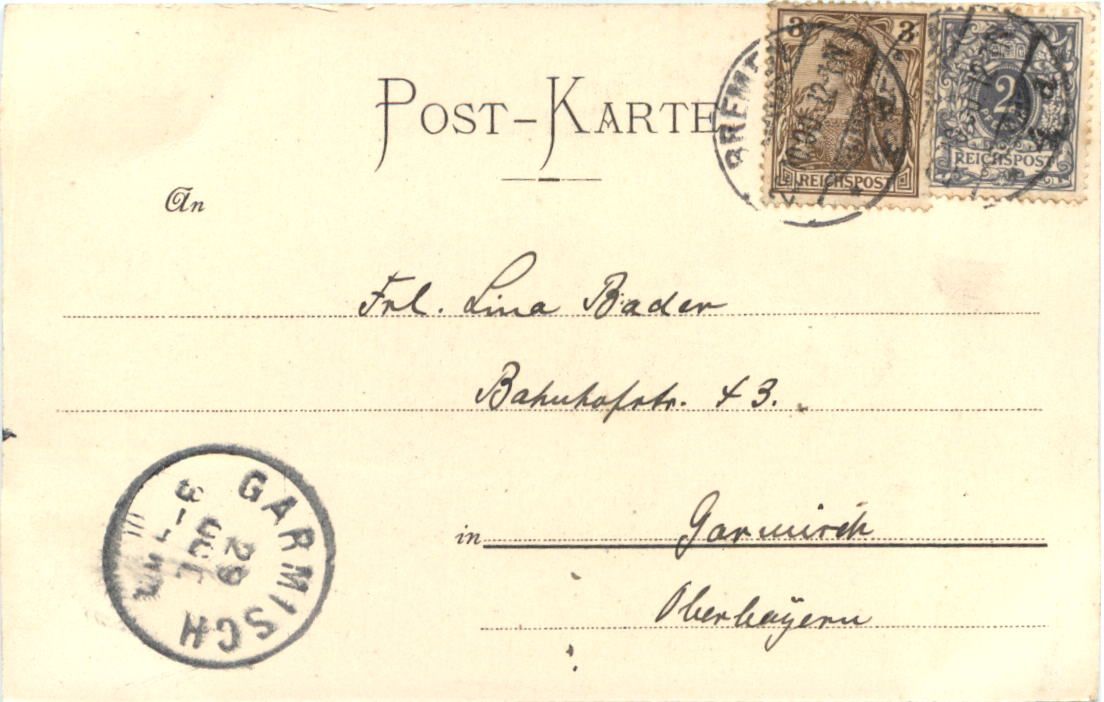 POST-KARTE
3 3
REICHSPOST
2
REICHSPOST
BREMEN
An
Frl. Lina Bader
Bahnhofstr. 43.
in Garmisch
Oberbayern
GARMISCH
29